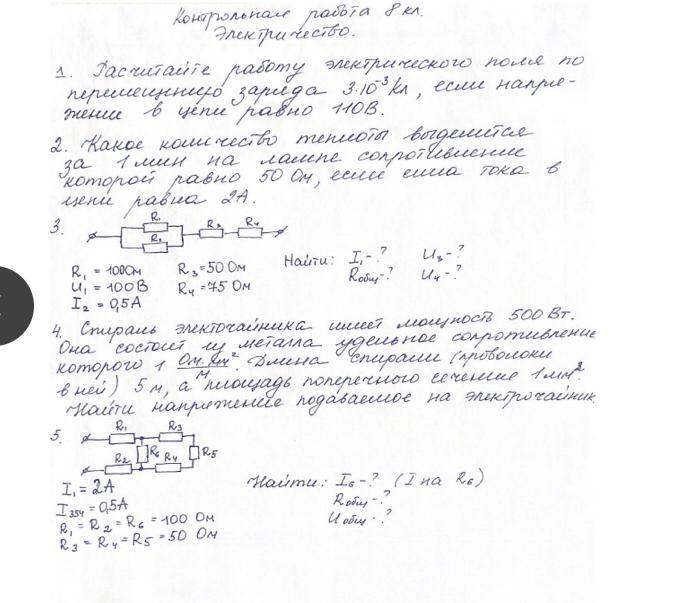 Контрольная работа 8 кл.
Электричество.
1. Расчитайте работу электрического поля по
перемещению заряда 3·10⁻³ Кл, если напря-
жение в цепи равно 110В.
2. Какое количество теплоты выделится
за 1 мин на лампе сопротивление
которой равно 50 Ом, если сила тока в
цепи равна 2А.
3.
R₁
R₂
R₃
R₄
R₁ = 100Ом
U₁ = 100В
I₂ = 0,5А
R₃ = 50 Ом
R₄ = 75 Ом
Найти: I₁ - ? U₃ - ?
Rобщ - ? U₄ - ?
4. Спираль электочайника имеет мощность 500 Вт.
Она состоит из металла удельное сопротивление
которого 1 Ом·мм²/м. Длина спирали (проволоки
в ней) 5 м, а площадь поперечного сечение 1 мм².
Найти напряжение подаваемое на электрочайник
5.
R₁
R₃
R₆
R₅
R₂
R₄
I₁ = 2А
I₃₅₄ = 0,5А
R₁ = R₂ = R₆ = 100 Ом
R₃ = R₄ = R₅ = 50 Ом
Найти: I₆ - ? (I на R₆)
Rобщ - ?
Uобщ - ?